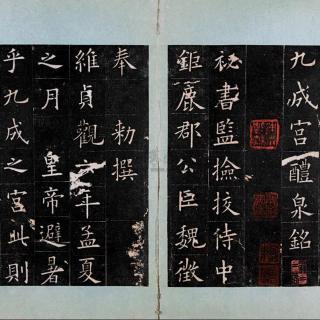 九成宮醴泉銘
祕書監撿挍侍中
鉅鹿郡公臣魏徵
奉勑撰
維貞觀六年孟夏
之月皇帝避暑
乎九成之宮此則